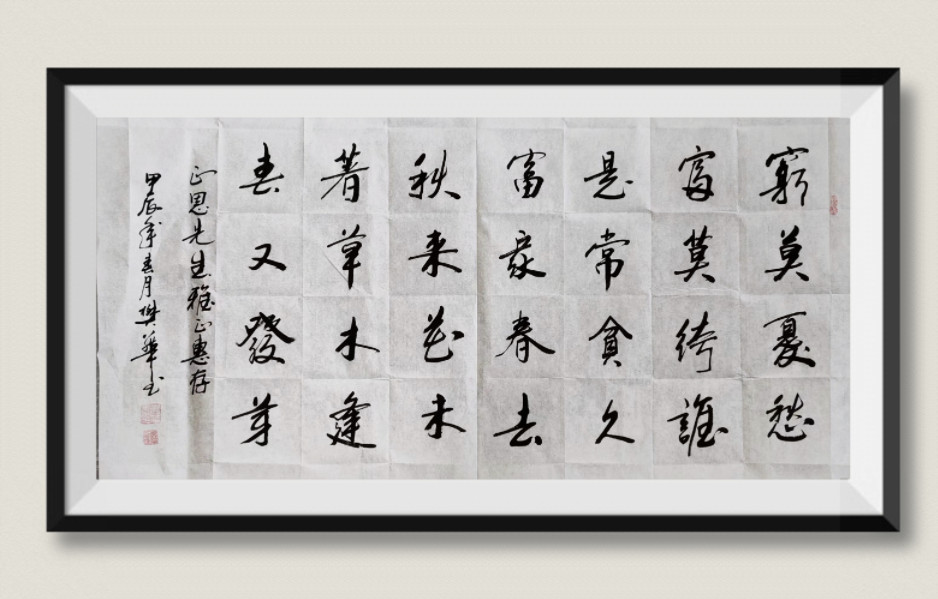 窮莫憂愁
富莫絝誰
是常貧久
富家春去
秋来花未
著草木逢
春又發芽
正思先生雅正惠存
甲辰年春月樊華书